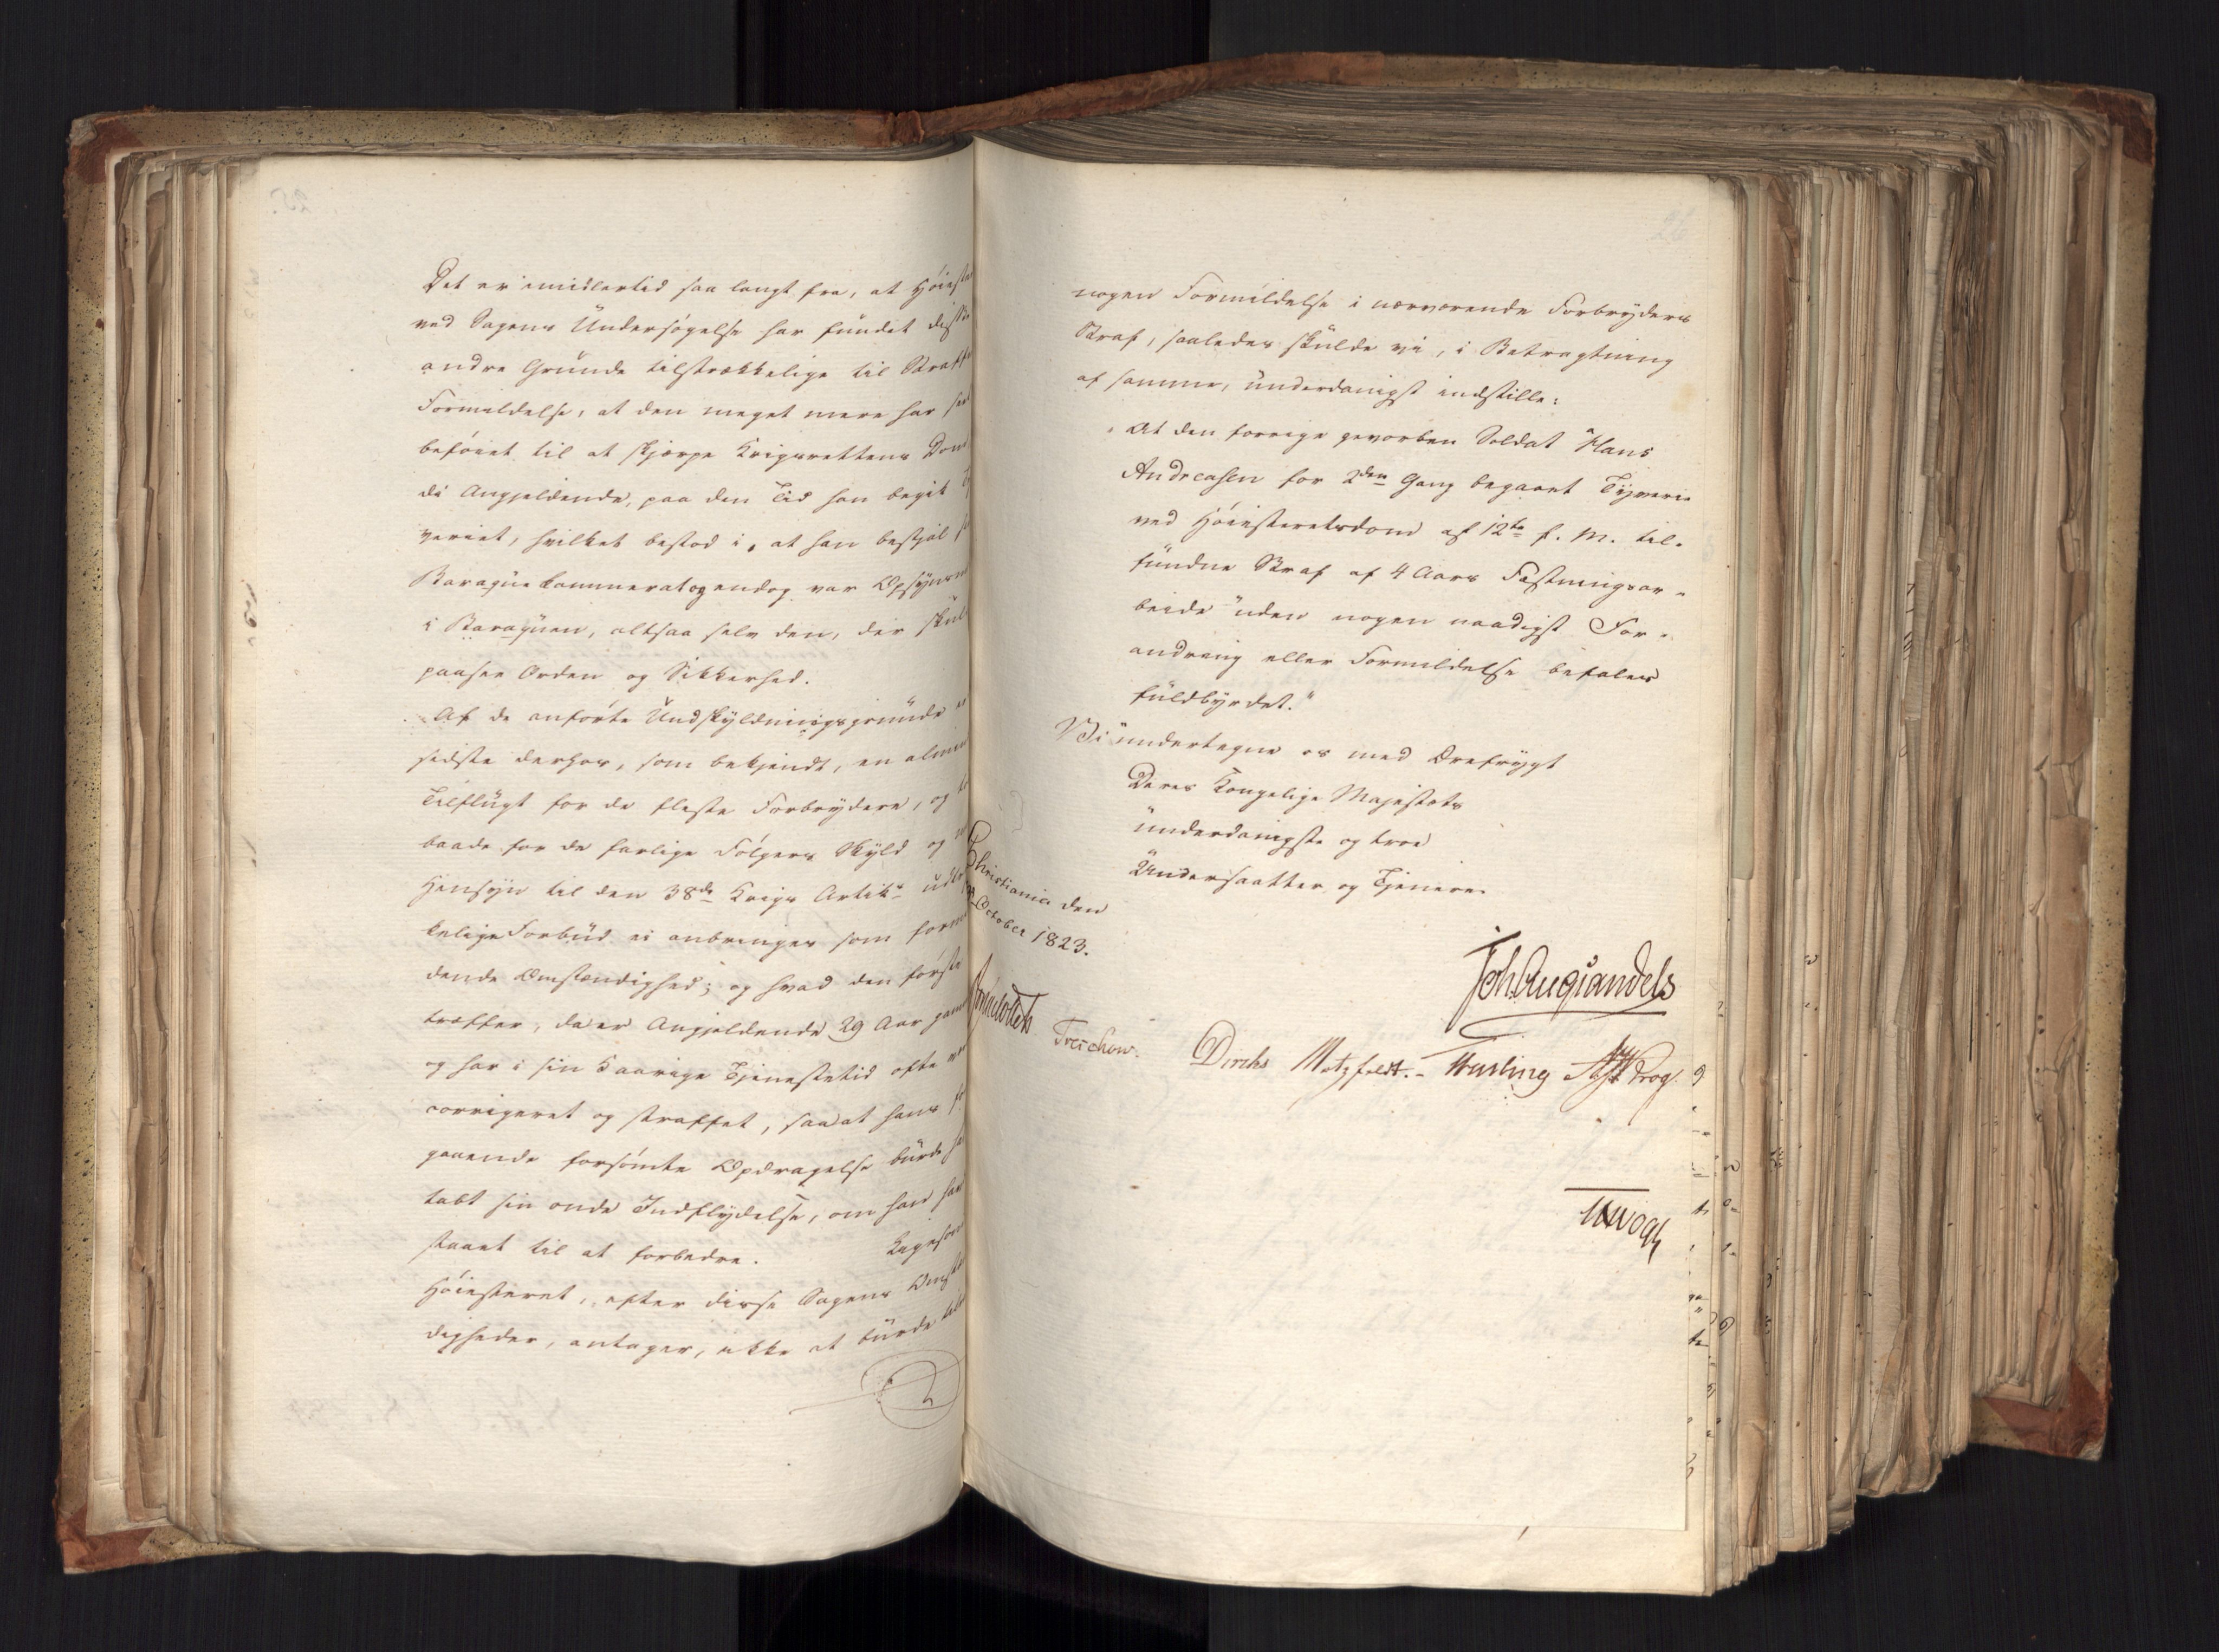 Det er imidlertid saa langt fra, at Høieste
ved Sagens Undersøgelse har fundet disse
andre Grunde tilstrækkelige til Straffe
Formildelse, at den meget mere har
beføiet til at skjærpe Krigsrettens Dom
da Angjeldende, paa den Tid han begik
veriet, hvilket bestod i, at han bestjal
Baraque kammerat og endog var Opsyns
i Baraquen, altsaa selv den, der skul
paasee Orden og Sikkerhed.
Af de anførte Undskyldningsgrunde er
sidste derhos, som bekjendt, en almin
Tilflugt for de fleste Forbrydere, og
baade for de farlige Følgers Skyld og
Hensyn til den 38de Krigs Artik. udtry
kelige Forbud ei anbringes som formil
dende Omstændighed; og hvad den første
træffer, da er Angjeldende 29 Aar gam
og har i sin 5 aarige Tjenestetid ofte
corrigeret og straffet, saa at hans
gaaende forsømte Opdragelse burde
tabt sin onde Indflydelse, om han hav
staaet til at forbedre.
Høiesteret, efter disse Sagens Omstæn
digheder, antager, ikke at burde
26
nogen Formildelse i nærværende Forbryders
Straf, saaledes skulde vi, i Betragtning
af samme, underdanigst indstille:
"At den forrige gevorben Soldat Hans
Andreasen for 2den Gang begaaet Tyverie
ved Høiesteretsdom af 12te f. M. til-
fundne Straf af 4 Aars Fæstningsar-
beide uden nogen naadigst For-
andring eller Formildelse befales
fuldbyrdet."
Vi undertegne os med Ærefrygt
Deres Kongelige Majestæts
underdanigste og troe
Undersaatter og Tjenere
Christiania den
October 1823.
Joh. Aug Sandels
Treschow.
Diriks Motzfeldt. Krog.
Vogt